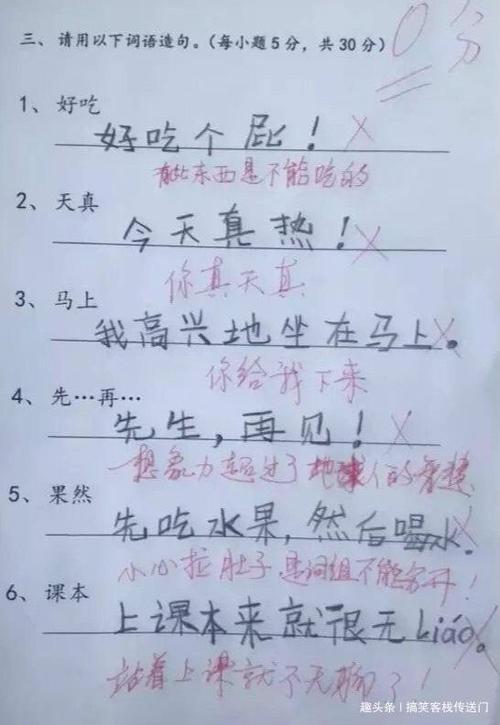 0分
三、请用以下词语造句。(每小题5分，共30分)
1、好吃
好吃个屁！
有些东西是不能吃的
2、天真
今天真热！
你真天真
3、马上
我高兴地坐在马上。
你给我下来
4、先…再…
先生，再见！
想象力超过了地球人的智慧
5、果然
先吃水果，然后喝水。
小心拉肚子 是词组不能分开！
6、课本
上课本来就很无Liáo。
站着上课就不无聊了！
趣头条｜搞笑客栈传送门